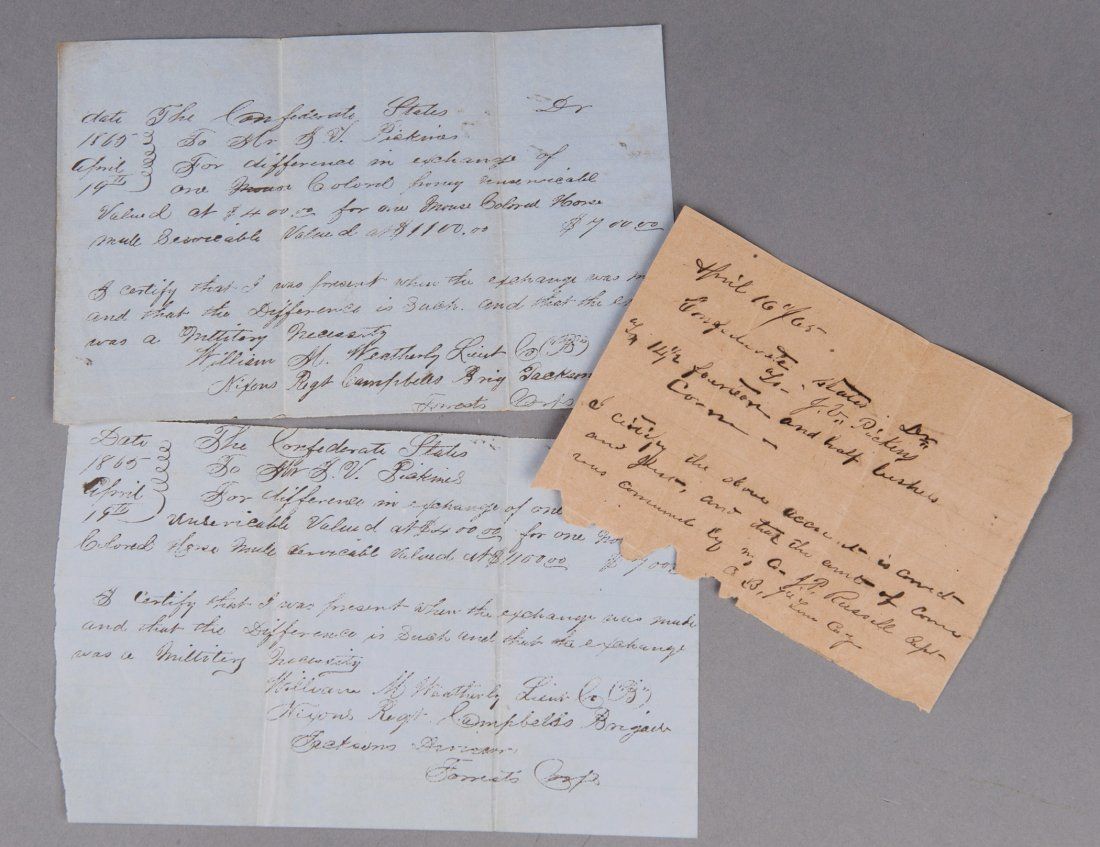 date The Confederate States Dr
1865 To Mr J. V. Pickines
April For difference in exchange of
19th one Colord poney unservicable
Valued at $400.00 for one Mouse Colored Horse
mule Servicable Valued at $1100.00 $700.00
I certify that I was present when the exchange was
and that the Difference is Such and that the
was a Millitery Necessity
William M. Weatherly Lieut Co ("B")
Nixons Regt Campbells Brig Jackson
Forrests
Date The Confederate States
1865 To Mr J. V. Pickines
April For difference in exchange of one
19th Unservicable Valued at $400.00 for one
Colored Horse Mule Servicable Valued at $1100.00 $700
I certify that I was present when the exchange was made
and that the Difference is Such and that the exchange
was a Millitery Necessity
William M Weatherly Lieut Co ("B")
Nixons Regt Campbells Brigade
Jacksons Division
Forrests Corps
April 16th/65
Confederate States Dr
To J. V. Picking
To 14 1/2 fourteen and half bushels
Corn
I certify the above account is correct
and Just, and that the amt of Corn
was consumed by my Co J. P. Russell Capt
Co B,